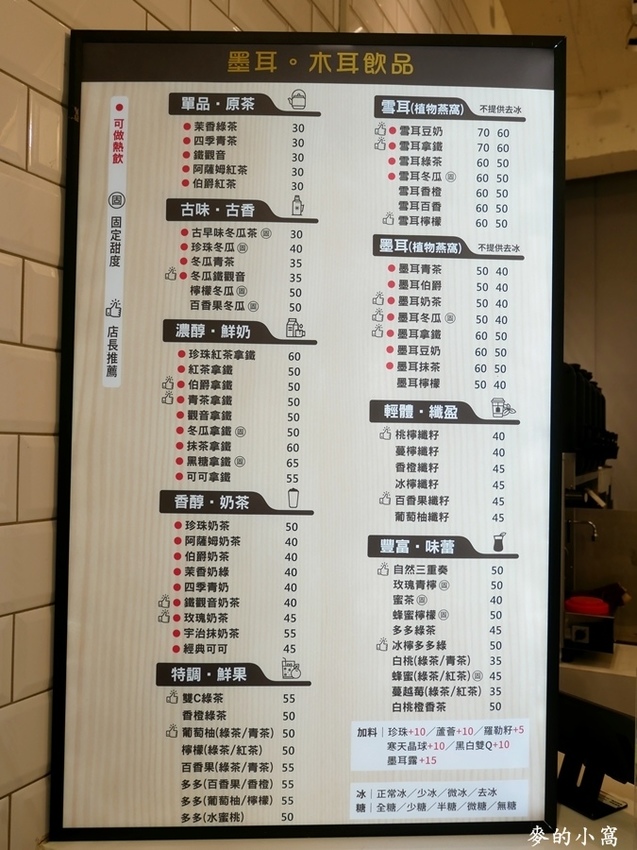 墨耳。木耳飲品
● 可做熱飲
固 固定甜度
店長推薦
單品・原茶
● 茉香綠茶 30
● 四季青茶 30
● 鐵觀音 30
● 阿薩姆紅茶 30
● 伯爵紅茶 30
古味・古香
● 古早味冬瓜茶 固 30
● 珍珠冬瓜 固 40
● 冬瓜青茶 35
● 冬瓜鐵觀音 35
檸檬冬瓜 固 50
百香果冬瓜 固 50
濃醇・鮮奶
● 珍珠紅茶拿鐵 60
● 紅茶拿鐵 50
● 伯爵拿鐵 50
● 青茶拿鐵 50
● 觀音拿鐵 50
● 冬瓜拿鐵 固 50
● 抹茶拿鐵 60
● 黑糖拿鐵 固 65
● 可可拿鐵 55
香醇・奶茶
● 珍珠奶茶 50
● 阿薩姆奶茶 40
● 伯爵奶茶 40
● 茉香奶綠 40
● 四季奶青 40
● 鐵觀音奶茶 40
● 玫瑰奶茶 45
● 宇治抹奶茶 55
● 經典可可 45
特調・鮮果
雙C綠茶 55
香橙綠茶 50
葡萄柚(綠茶/青茶) 50
檸檬(綠茶/紅茶) 50
百香果(綠茶/青茶) 55
多多(百香果/香橙) 55
多多(葡萄柚/檸檬) 55
多多(水蜜桃) 50
雪耳(植物燕窩) 不提供去冰
● 雪耳豆奶 70 60
● 雪耳拿鐵 70 60
● 雪耳綠茶 60 50
● 雪耳冬瓜 固 60 50
雪耳香橙 60 50
雪耳百香 60 50
雪耳檸檬 60 50
墨耳(植物燕窩) 不提供去冰
● 墨耳青茶 50 40
● 墨耳伯爵 50 40
● 墨耳奶茶 50 40
● 墨耳冬瓜 固 50 40
● 墨耳拿鐵 60 50
● 墨耳豆奶 60 50
● 墨耳抹茶 60 50
墨耳檸檬 50 40
輕體・纖盈
桃檸纖籽 40
蔓檸纖籽 40
香橙纖籽 45
冰檸纖籽 45
百香果纖籽 45
葡萄柚纖籽 45
豐富・味蕾
自然三重奏 50
玫瑰青檸 固 50
蜜茶 固 40
蜂蜜檸檬 固 50
多多綠茶 45
冰檸多多綠 50
白桃(綠茶/青茶) 35
蜂蜜(綠茶/紅茶) 固 45
蔓越莓(綠茶/紅茶) 35
白桃橙香茶 50
加料｜珍珠+10／蘆薈+10／羅勒籽+5
寒天晶球+10／黑白雙Q+10
墨耳露+15
冰｜正常冰／少冰／微冰／去冰
糖｜全糖／少糖／半糖／微糖／無糖
麥的小窩